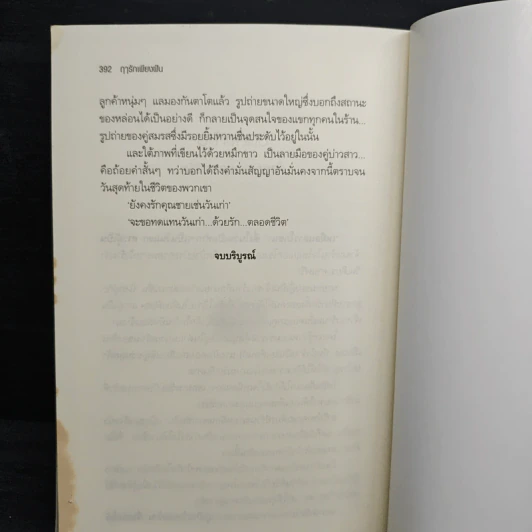 392 ฤๅรักเพียงฝัน
ลูกค้าหนุ่มๆ แลมองกันตาโตแล้ว รูปถ่ายขนาดใหญ่ซึ่งบอกถึงสถานะ
ของหล่อนได้เป็นอย่างดี ก็กลายเป็นจุดสนใจของแขกทุกคนในร้าน...
รูปถ่ายของคู่สมรสซึ่งมีรอยยิ้มหวานชื่นประดับไว้อยู่ในนั้น
และใต้ภาพที่เขียนไว้ด้วยหมึกขาว เป็นลายมือของคู่บ่าวสาว...
คือถ้อยคำสั้นๆ ทว่าบอกได้ถึงคำมั่นสัญญาอันมั่นคงจากนี้ตราบจน
วันสุดท้ายในชีวิตของพวกเขา
'ยังคงรักคุณชายเช่นวันเก่า'
'จะขอทดแทนวันเก่า...ด้วยรัก...ตลอดชีวิต'
จบบริบูรณ์